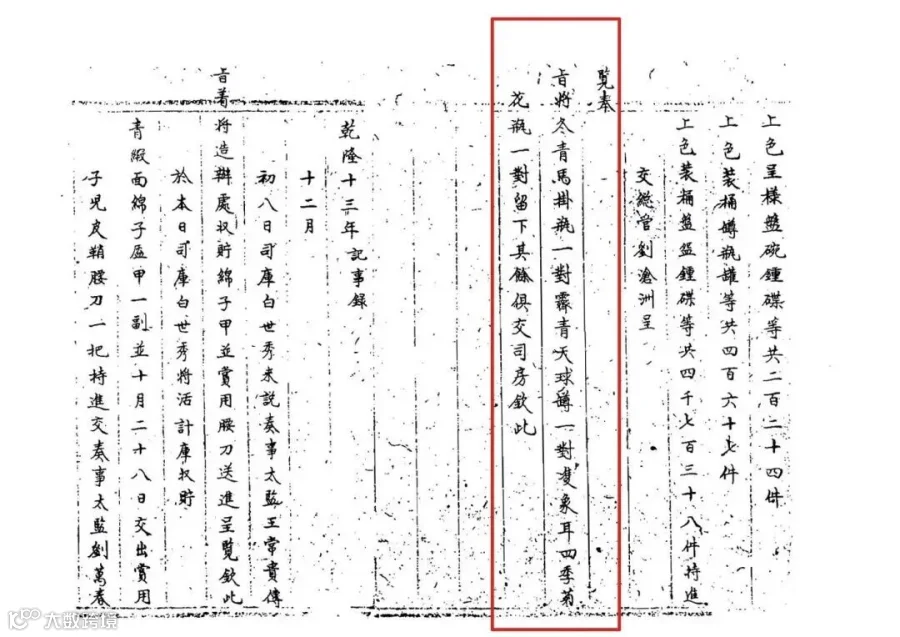 上色呈樣盤碗鍾碟等共二百二十四件
上色裝桶罇瓶罐等共四百六十七件
上色裝桶盤盌鍾碟等共四千七百三十八件持進
交總管劉滄洲呈
覽奉
旨將冬青馬掛瓶一對霽青天球罇一對雙象耳四季菊
花瓶一對留下其餘俱交司房欽此
乾隆十三年記事錄
十二月
初八日司庫白世秀來說奏事太監王常貴傳
旨着將造辦處收貯綿子甲並賞用腰刀送進呈覽欽此
於本日司庫白世秀將活計庫收貯
青緞面綿子盔甲一副並十月二十八日交出賞用
子兒皮鞘腰刀一把持進交奏事太監劉萬春
大数跨境